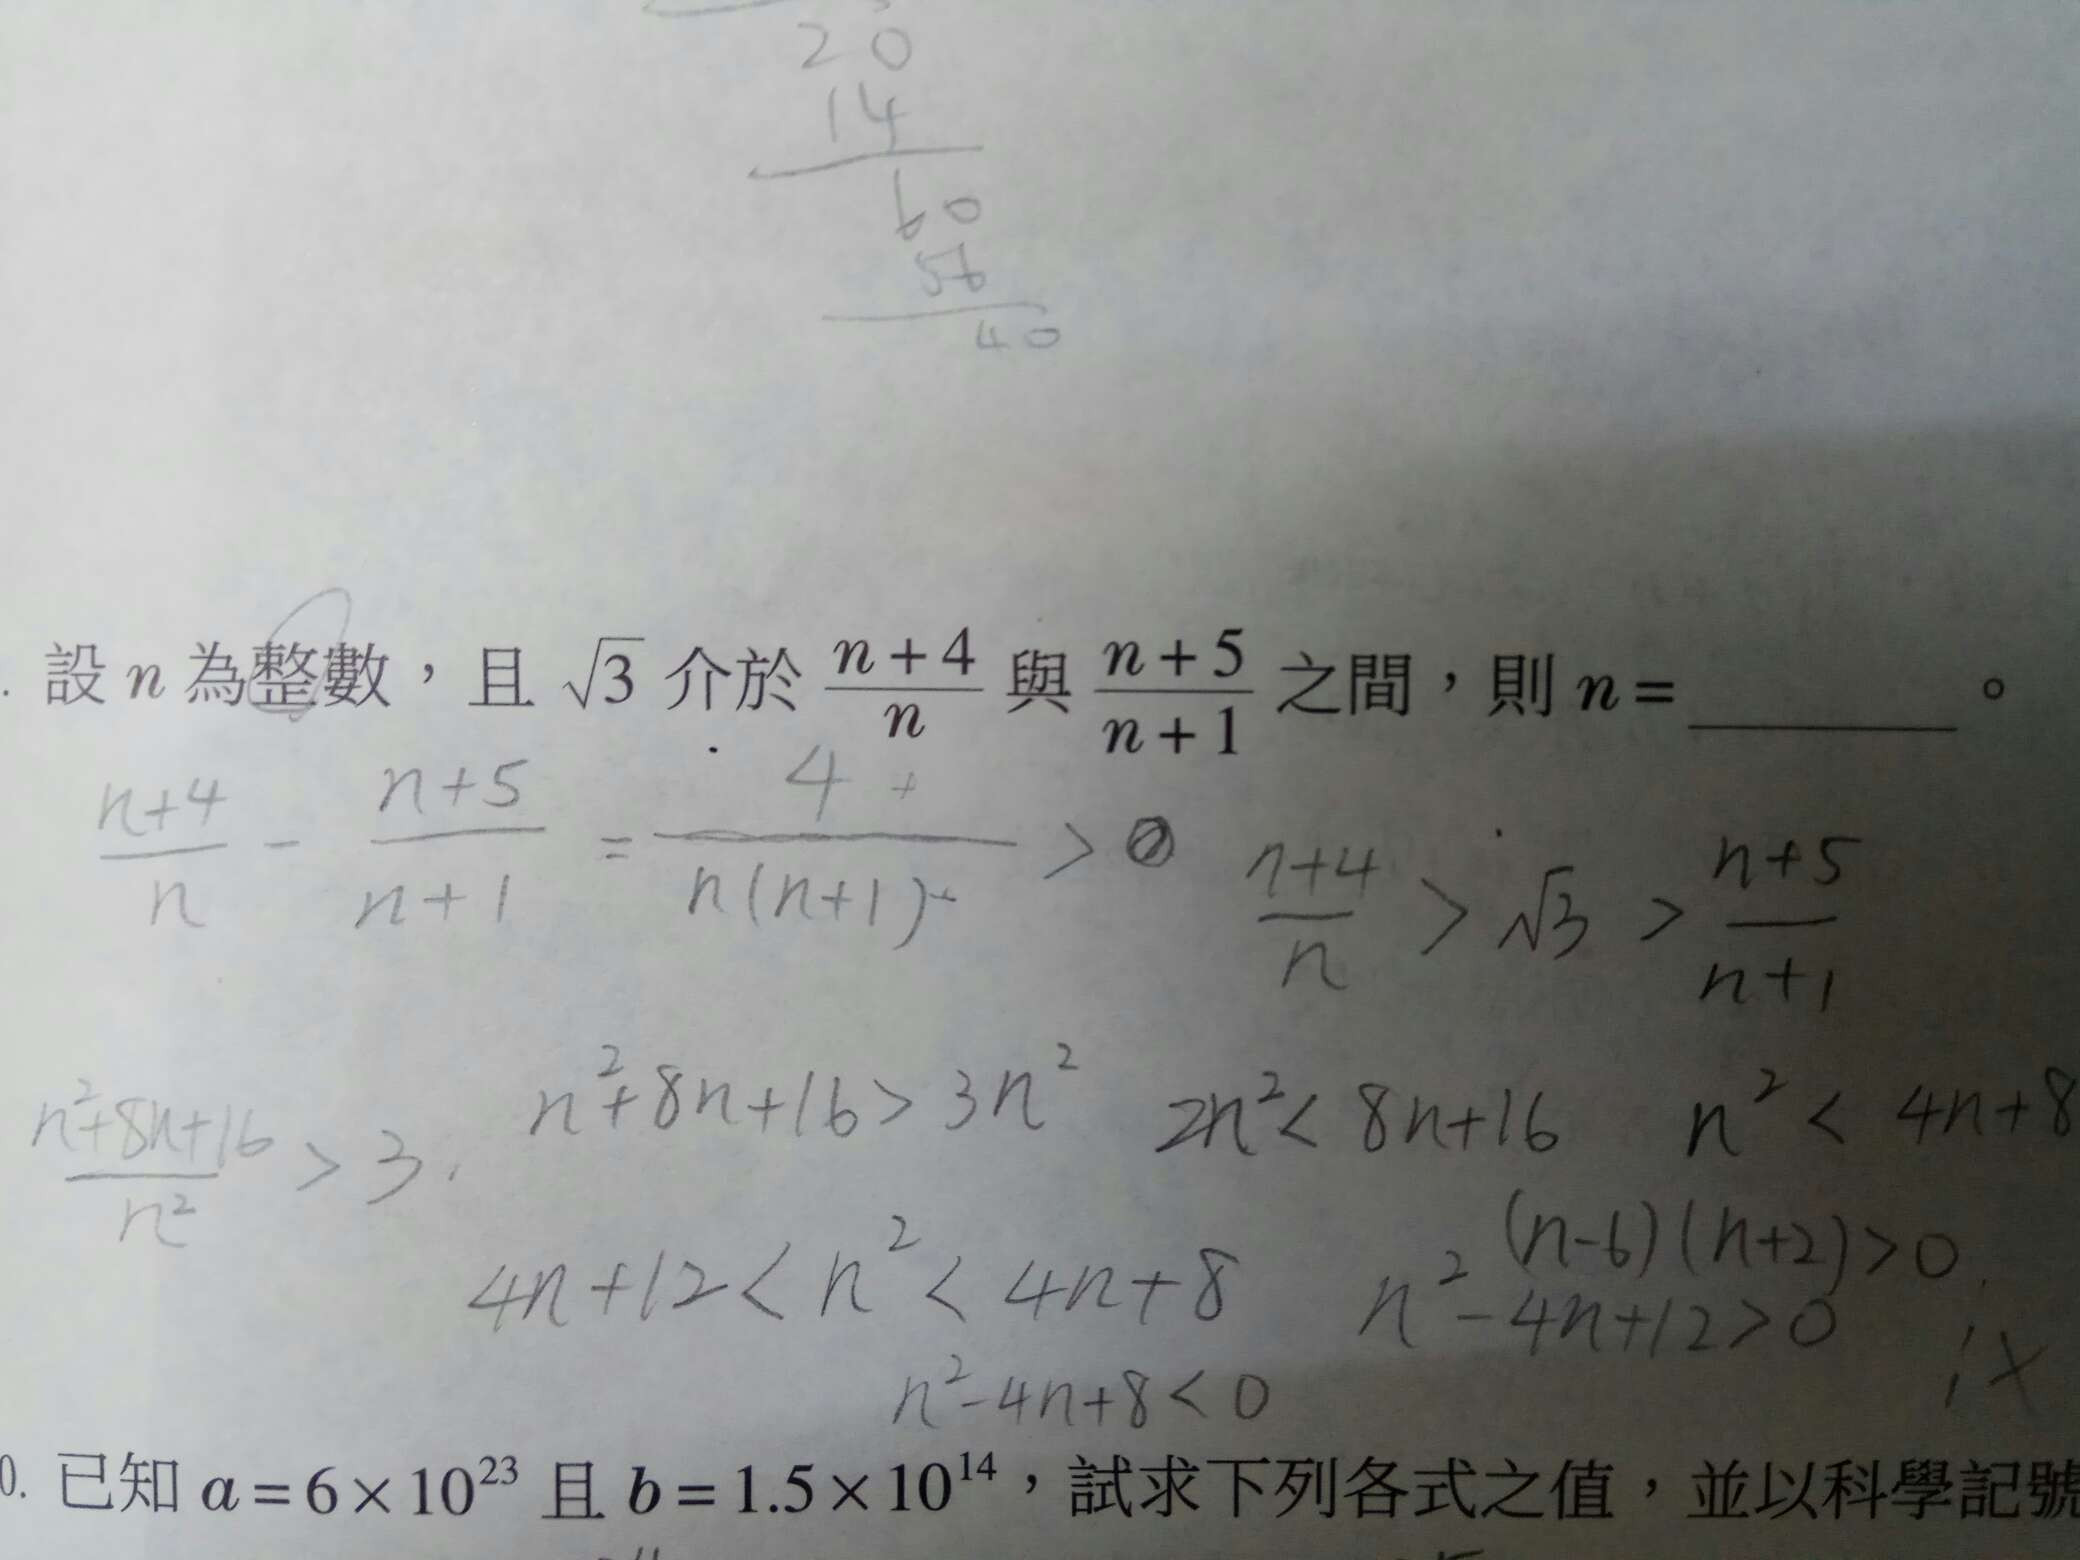 20
14
60
56
40
. 設 n 為整數，且 √3 介於 (n+4)/n 與 (n+5)/(n+1) 之間，則 n = ______ 。
(n+4)/n - (n+5)/(n+1) = 4/(n(n+1)) > 0
(n+4)/n > √3 > (n+5)/(n+1)
(n²+8n+16)/n² > 3. n²+8n+16 > 3n² 2n² < 8n+16 n² < 4n+8
(n-6)(n+2)>0
4n+12 < n² < 4n+8 n²-4n+12>0
n²-4n+8<0
0. 已知 a = 6×10²³ 且 b = 1.5×10¹⁴，試求下列各式之值，並以科學記號